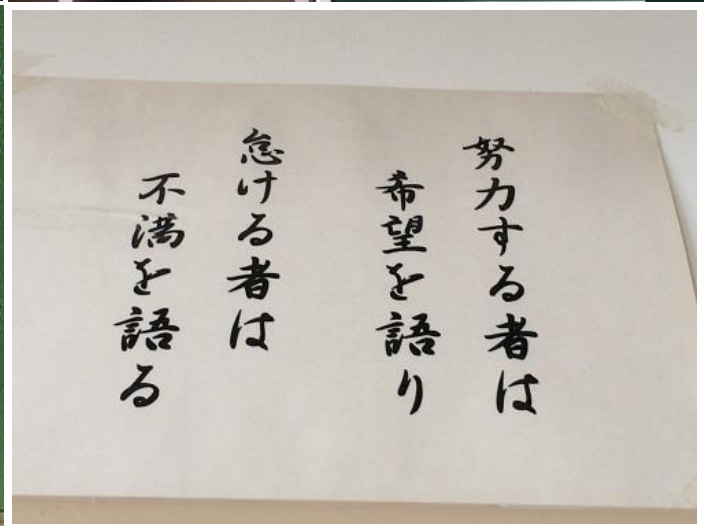 努力する者は
希望を語り
怠ける者は
不満を語る